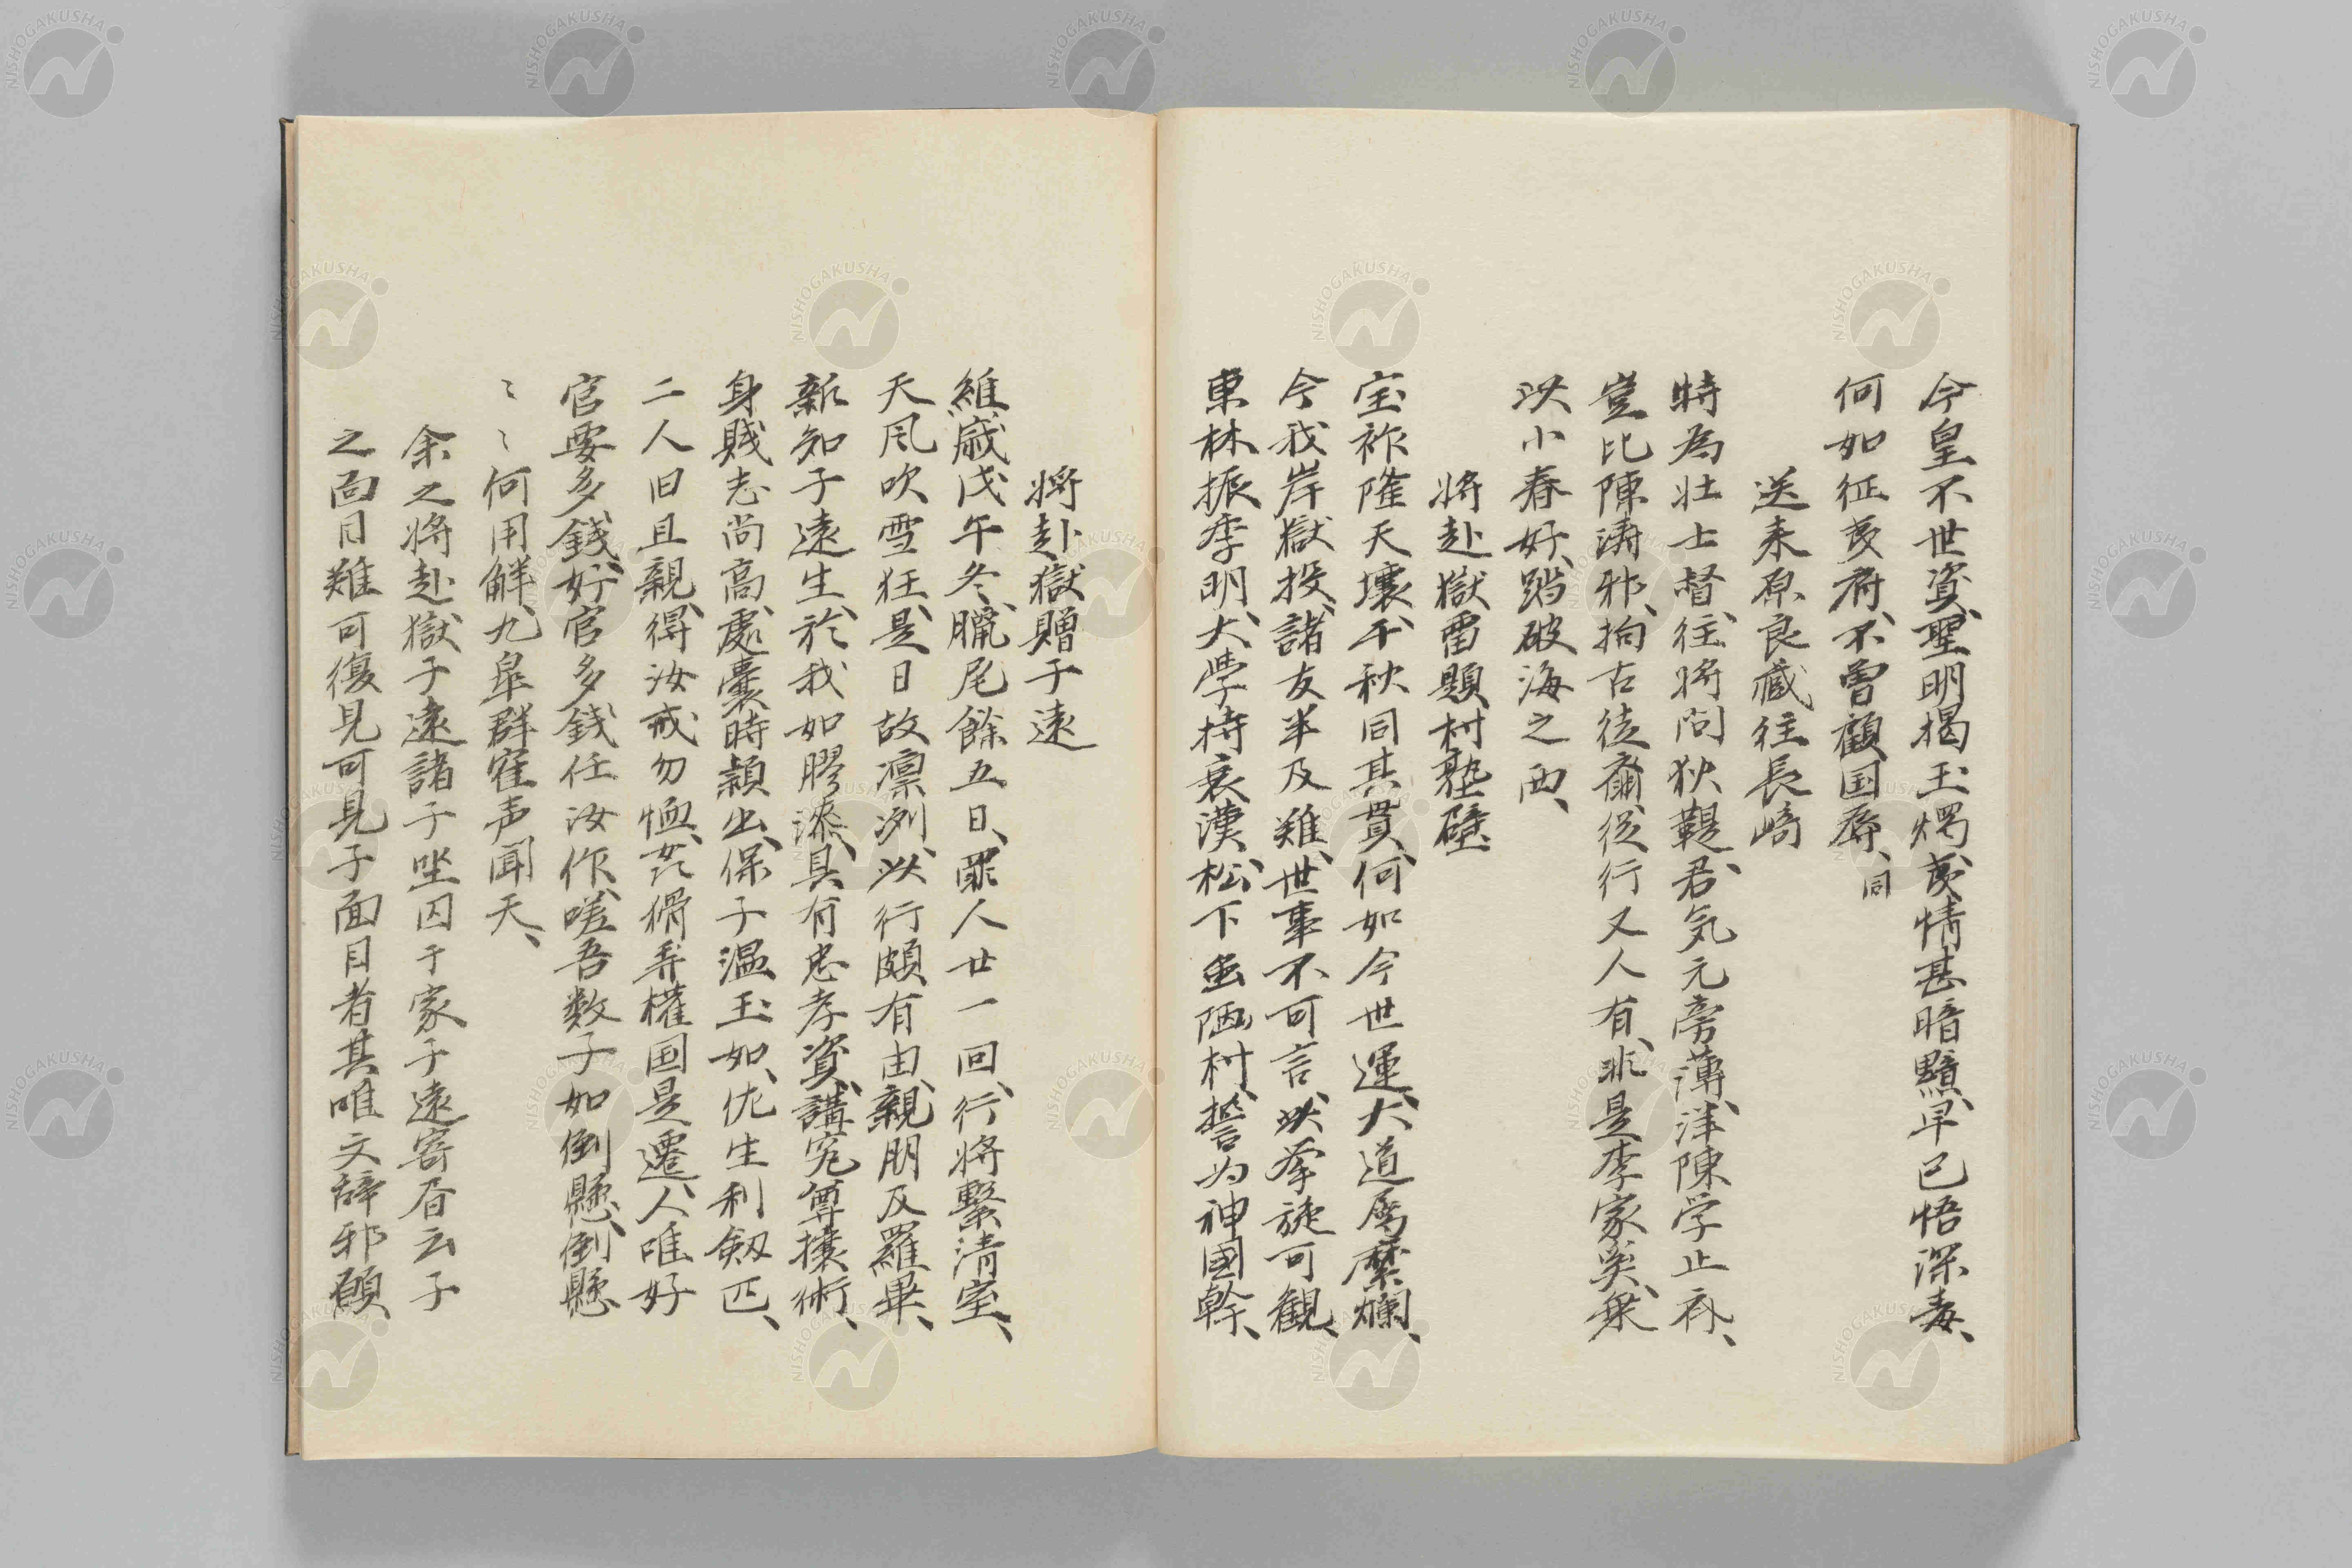 今皇不世資、聖明揭玉燭、夷情甚暗黷、早已悟深毒、
何如征夷府、不曽顧国辱、同
送来原良蔵往長﨑
時為壮士督、往将問狄鞮、君気元旁薄、洋陳学止斉、
豈比陳濤邪、拘古徒爾従行又人有、非是李家奚、無
以小春好、踏破海之西、
将赴獄留題村塾壁
宝祚隆天壤、千秋同其貫、何如今世運、大道属糜爛、
今我岸獄投、諸友半及難、世事不可言、此挙旋可観、
東林振季明、大学持衰漢、松下雖陋村、誓為神國幹、
将赴獄贈子遠
維歳戊午冬、臘尾餘五日、罪人廿一回、行将繋清室、
天風吹雪狂、是日故凛冽、此行頗有由、親朋及羅畢、
新知子遠生、於我如膠漆、具有忠孝資、講究尊攘術、
身賎志尚高、處囊時穎出、保子温玉如、伉生利剱匹、
二人旧且親、得汝戒勿恤、姦猾弄權国是遷、人唯好
官要多錢、好官多錢任汝作、嗟吾数子如倒懸、倒懸
〻〻何用解、九皐群寉声聞天、
余之将赴獄子遠諸子坐囚于家子遠寄眉云子
之面目難可復見可見子面目者其唯文辞邪顧